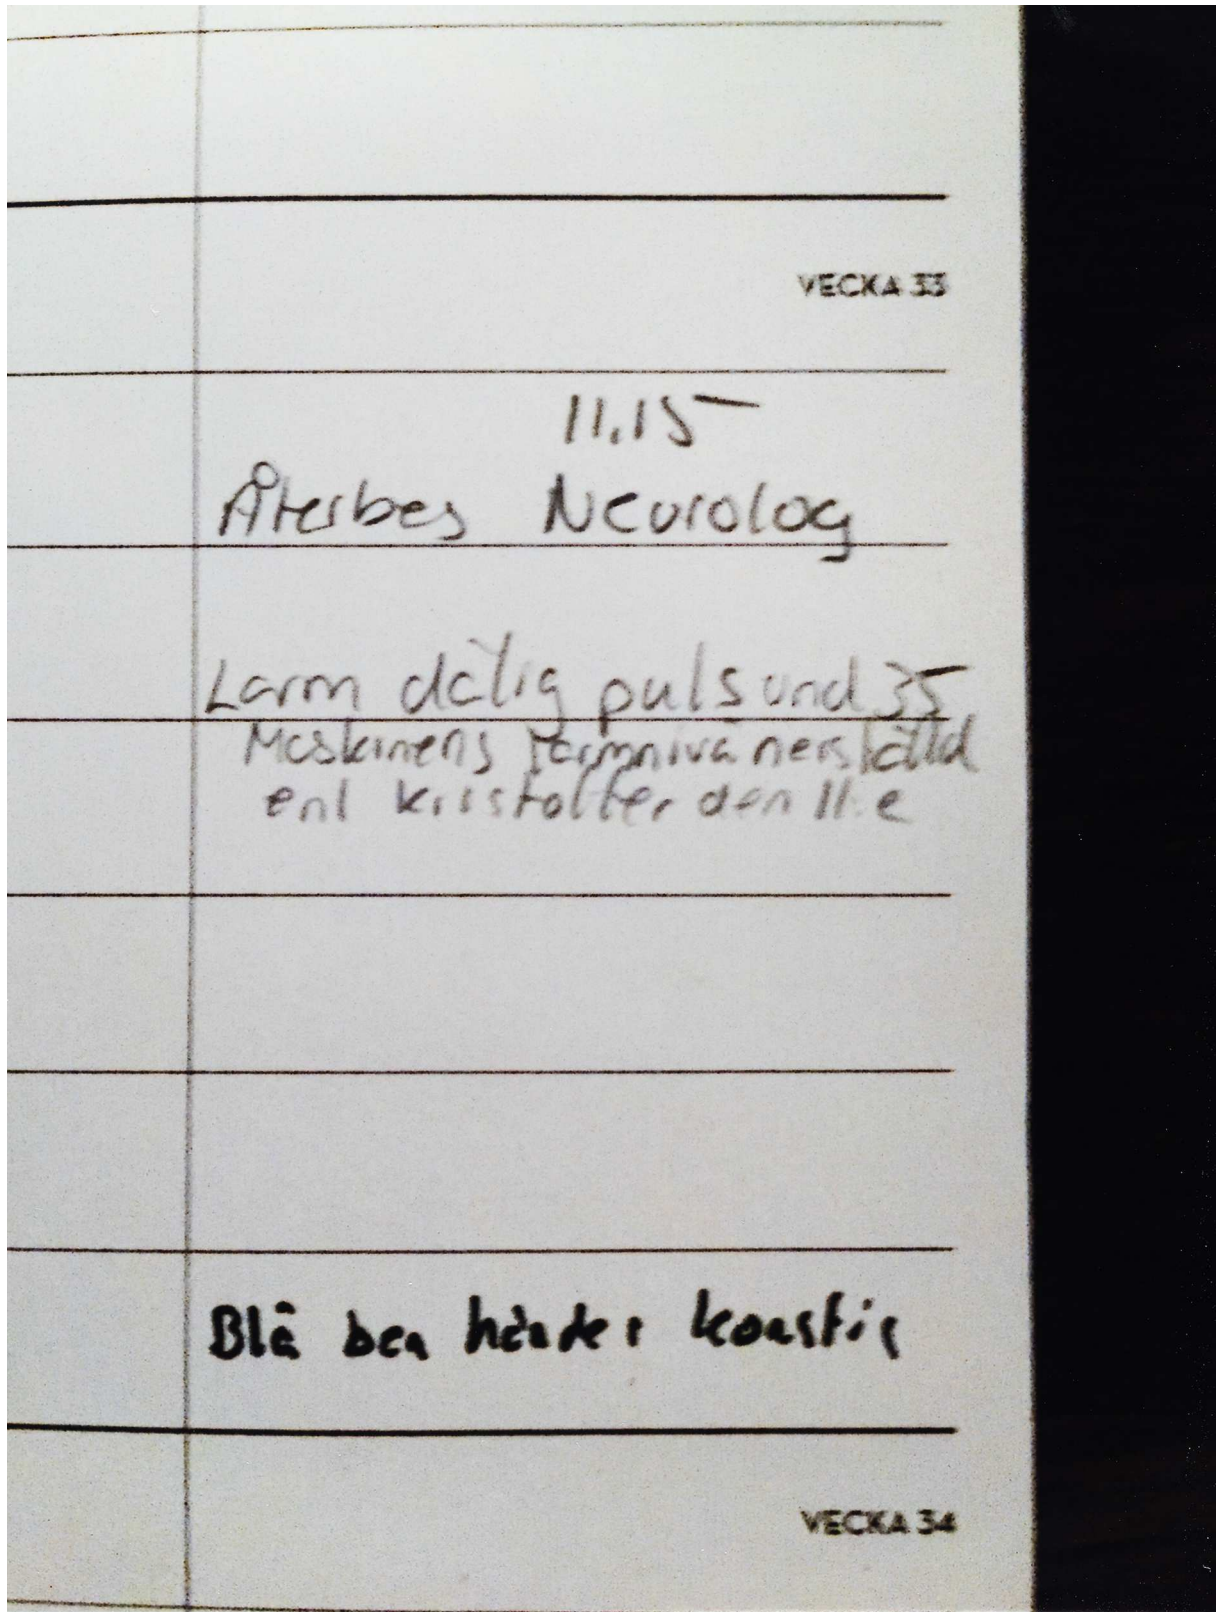 VECKA 33
11.15
Återbes Neurolog
Larm dålig puls und 35
Maskinens larmnivå nerställd
enl kristoffer den 11:e
Blå ben händer konstig
VECKA 34